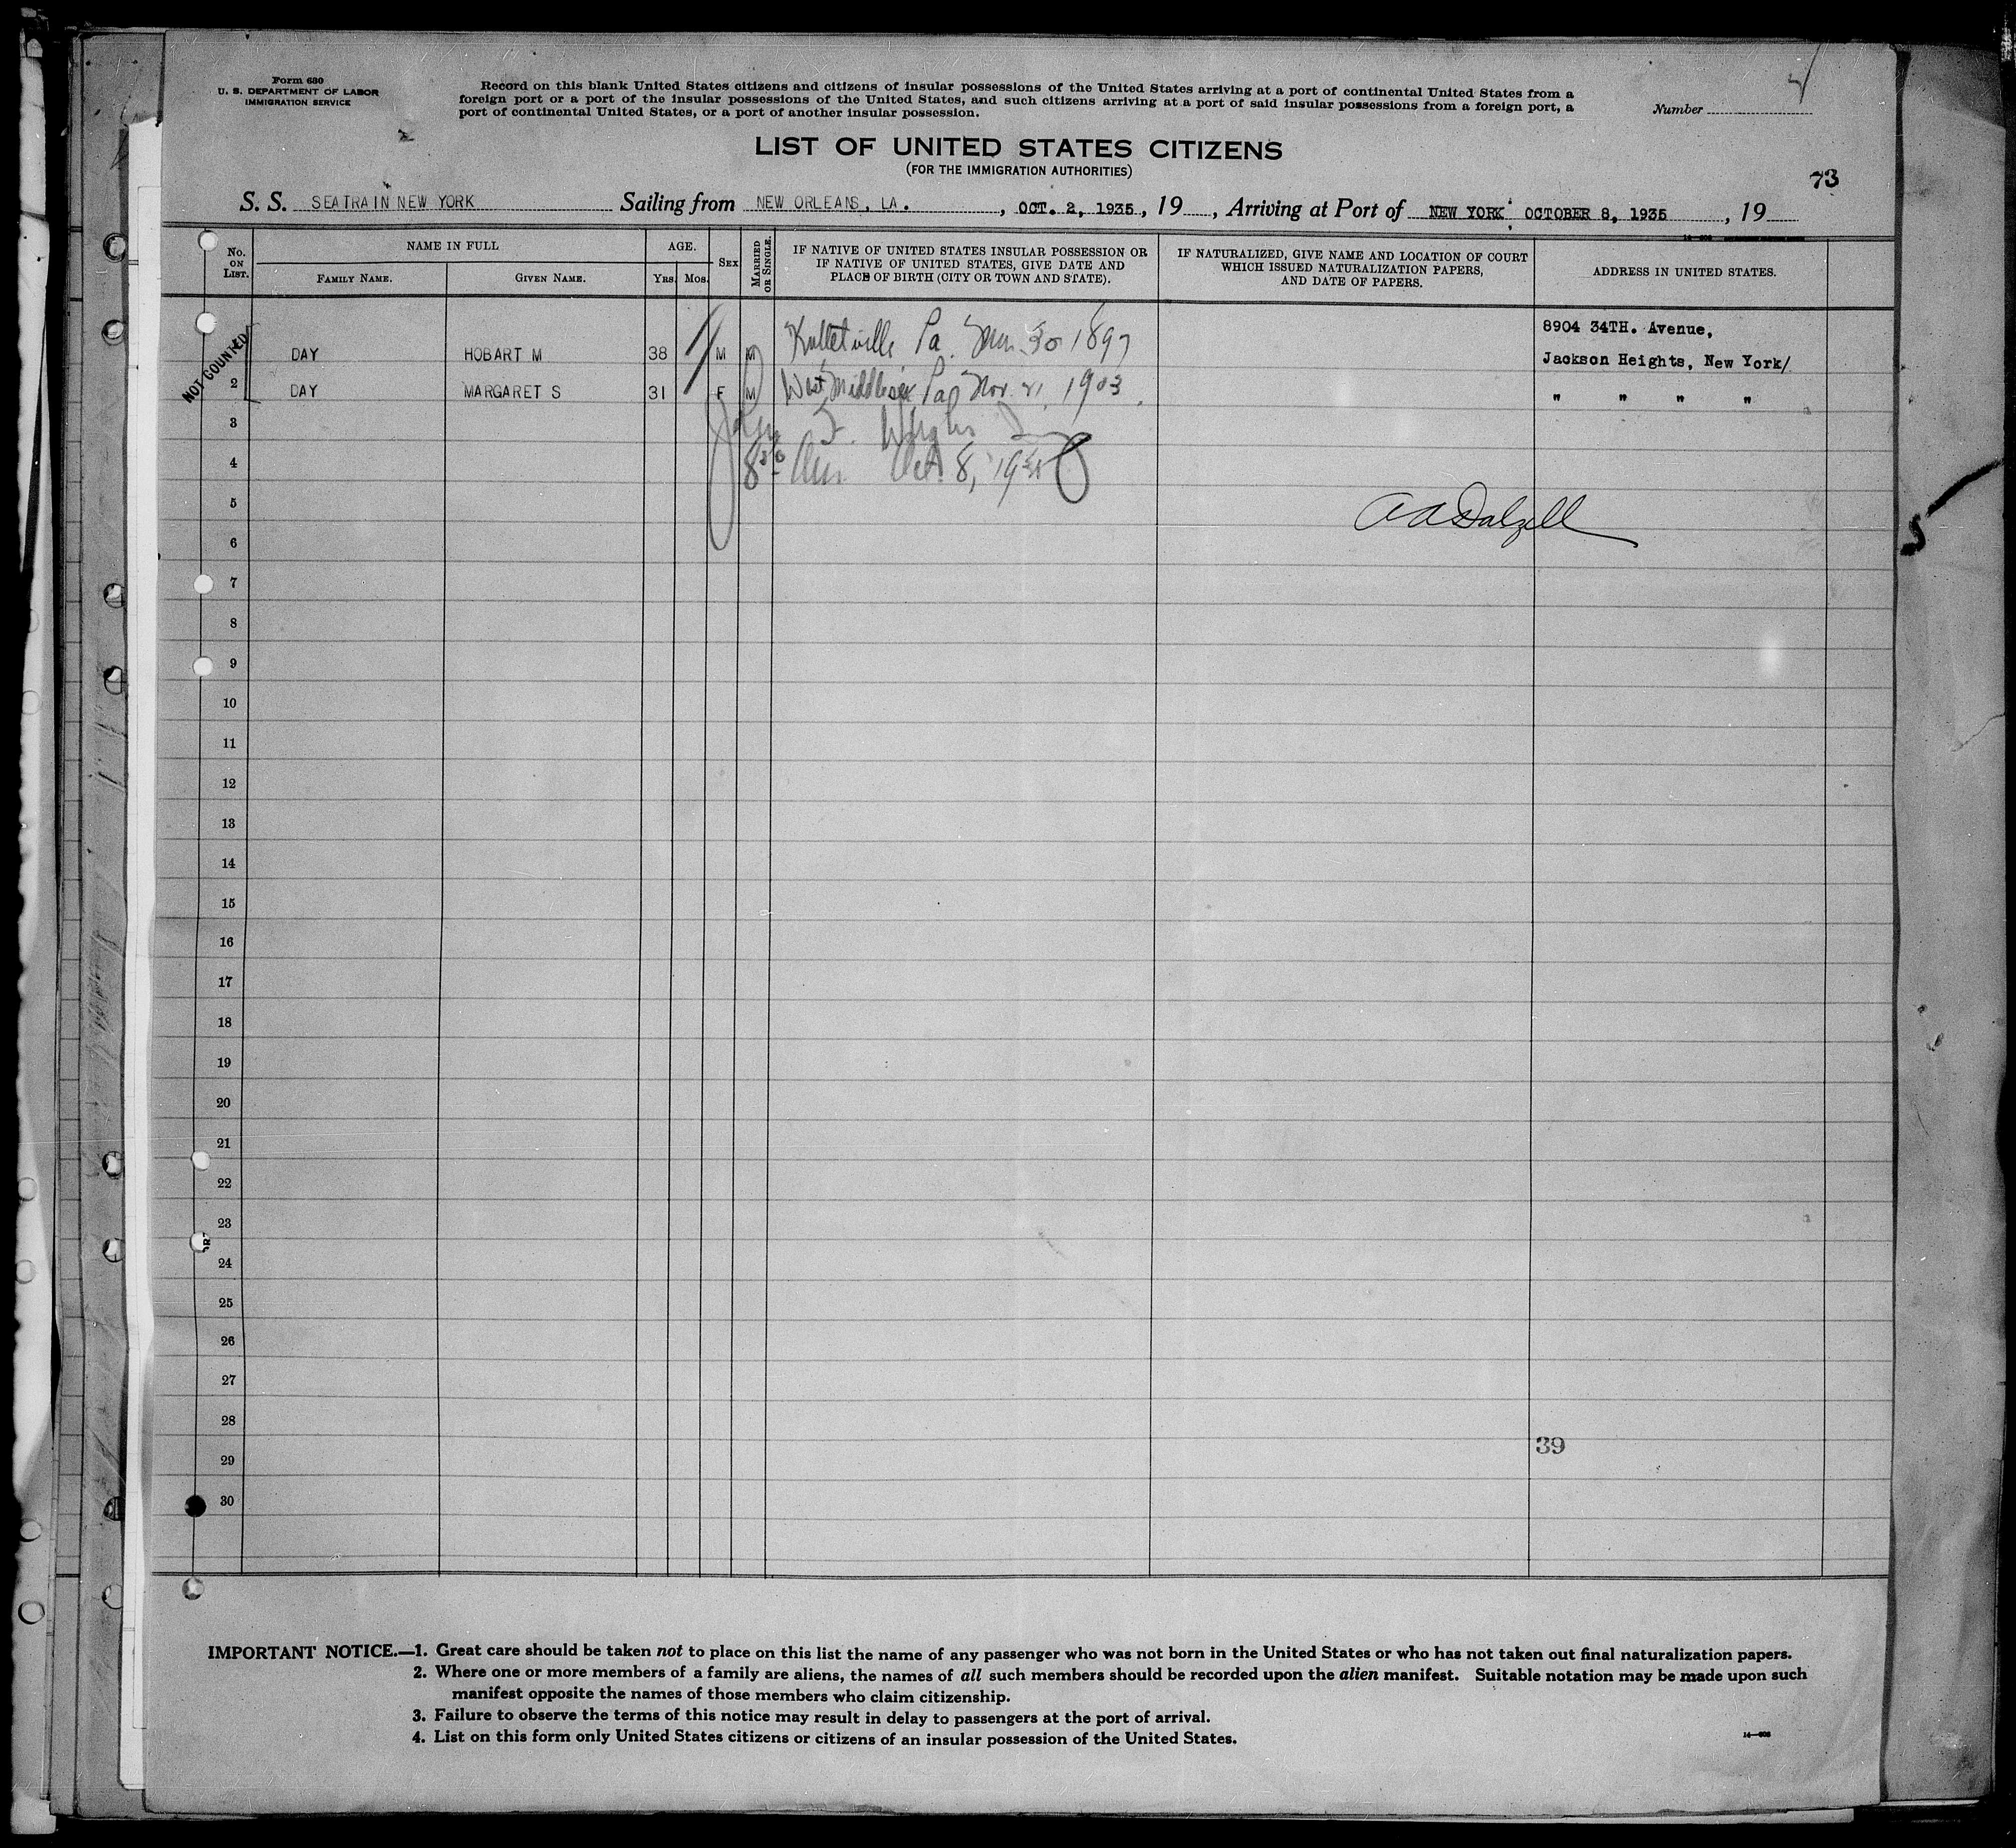 Form 630
U. S. DEPARTMENT OF LABOR
IMMIGRATION SERVICE
Record on this blank United States citizens and citizens of insular possessions of the United States arriving at a port of continental United States from a
foreign port or a port of the insular possessions of the United States, and such citizens arriving at a port of said insular possessions from a foreign port, a
port of continental United States, or a port of another insular possession.
Number
LIST OF UNITED STATES CITIZENS
(FOR THE IMMIGRATION AUTHORITIES)
73
S. S. SEATRAIN NEW YORK Sailing from NEW ORLEANS, LA. , OCT. 2, 1935, 19 , Arriving at Port of NEW YORK OCTOBER 8, 1935 , 19
No. ON LIST.
NAME IN FULL
FAMILY NAME.
GIVEN NAME.
AGE.
Yrs.
Mos.
SEX
MARRIED OR SINGLE.
IF NATIVE OF UNITED STATES INSULAR POSSESSION OR
IF NATIVE OF UNITED STATES, GIVE DATE AND
PLACE OF BIRTH (CITY OR TOWN AND STATE).
IF NATURALIZED, GIVE NAME AND LOCATION OF COURT
WHICH ISSUED NATURALIZATION PAPERS,
AND DATE OF PAPERS.
ADDRESS IN UNITED STATES.
NOT COUNTED
8904 34TH. Avenue,
DAY HOBART M 38 M M Pa. 30 1897 Jackson Heights, New York/
2 DAY MARGARET S 31 F M West Middlesex Pa Nov. 21, 1903 " " " "
3
John F.
4
8 30 Am. Oct. 8, 1935
5
A A Dalzell
6
7
8
9
10
11
12
13
14
15
16
17
18
19
20
21
22
23
24
25
26
27
28
39
29
30
IMPORTANT NOTICE.—1. Great care should be taken not to place on this list the name of any passenger who was not born in the United States or who has not taken out final naturalization papers.
2. Where one or more members of a family are aliens, the names of all such members should be recorded upon the alien manifest. Suitable notation may be made upon such
manifest opposite the names of those members who claim citizenship.
3. Failure to observe the terms of this notice may result in delay to passengers at the port of arrival.
4. List on this form only United States citizens or citizens of an insular possession of the United States.